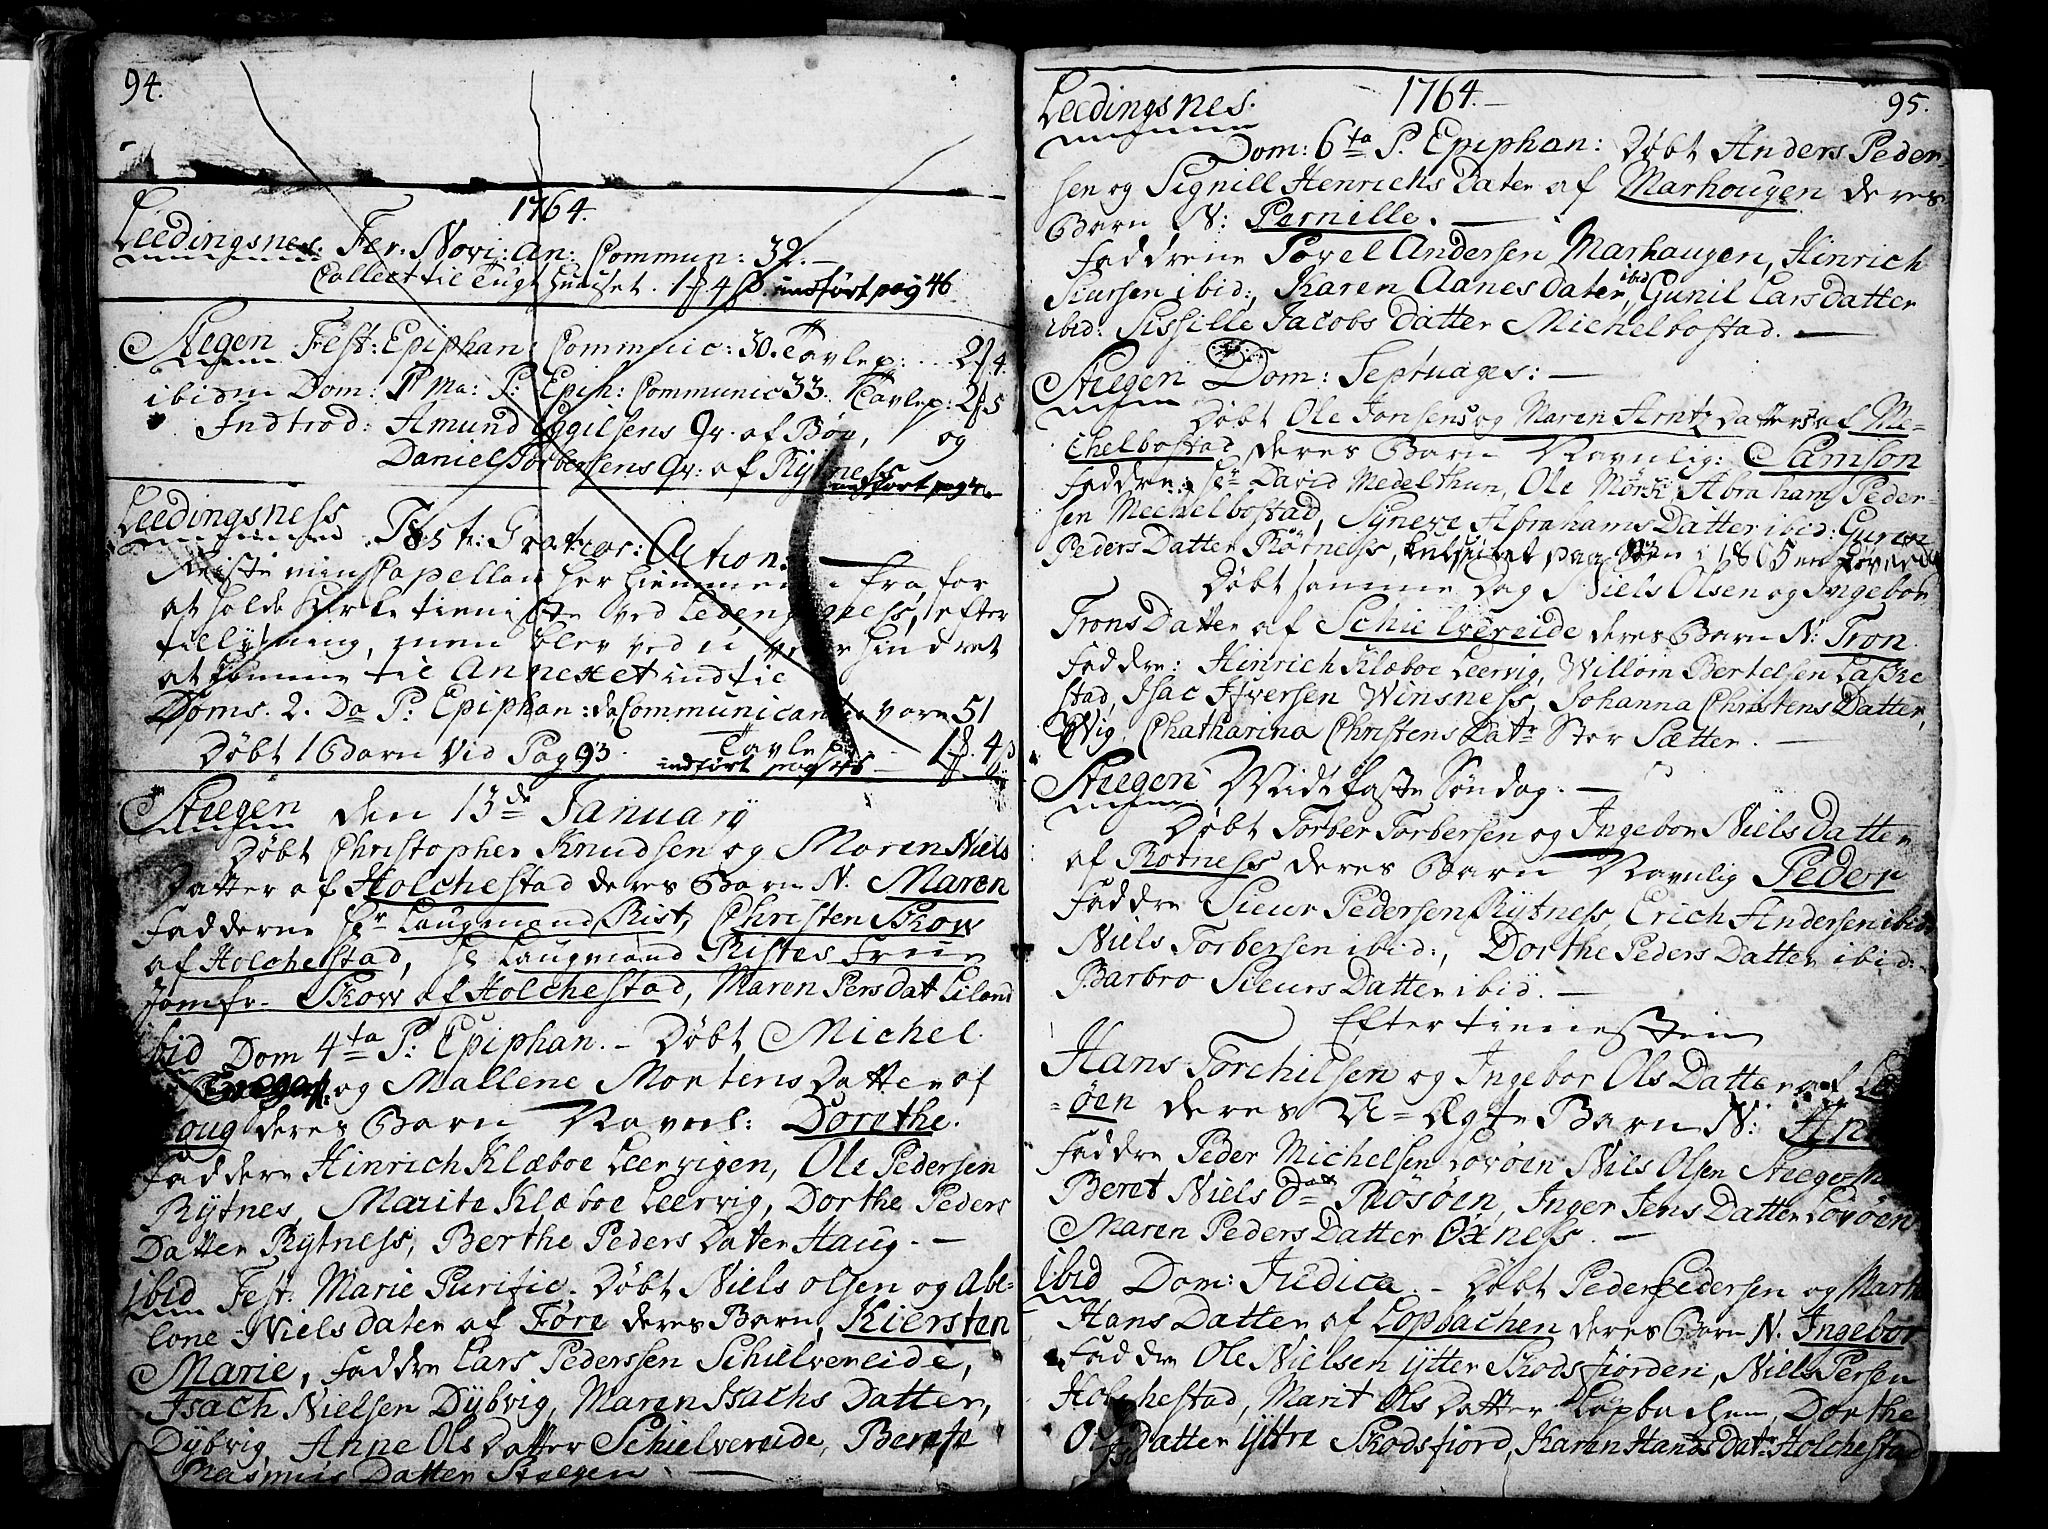 94.
1764.
Leedingsnes. Fer: Novi: an: Commun: 32.
Collect til Tugt Huuset. 1 4 indført pag 46
Stegen Fest: Epiphan: Communic: 30. Tavlep: 2 4
ibidm Dom: 1ma: P: Epih: Communic 33. Tavlep: 2 5
Indtrod: Amund Eggilsens Qv. af Bøe, og
Daniel Torbersens Qv: af Rytness indført pag
Leedingsness Fest: Gratiar: Action:
Reiste min Capellan her hiemme fra, for
at holde Kirketieniste ved Ledengsness, efter
tillysning, men blev ved u-veir hindret
at komme til Annexet indtil
Doms. 2. Da P: Epiphan: da Communicantes vare 51
Døbt 1 Barn Vid Pag 93. Tavlep 1 4
indført pag 46
Stegen den 13de Januarij
Døbt Christopher Knudsen og Maren Niels
Datter af Holchestad deres Barn N. Maren
Fadderne Hr Laugmand Rist, Christen Skow
af Holchestad, Hr Laugmand Ristes Frue
Jomfr. Skow af Holchestad, Maren Pers Dat Lilond
ibid Dom 4ta P: Epiphan. - Døbt Michel
og Mallene Mortens Datter af
oug deres Barn Navnl: Dorethe.
Faddere Hinrich Klæboe Leervigen, Ole Pedersen
Rytnes, Marite Klæboe Leervig, Dorthe Peders
Datter Rytness, Berthe Peders Dater Haug. -
ibid Fest: Marie Purific. Døbt Niels Olsen og Abe-
lone Niels dater af Føre deres Barn, Kiersten
Marie, Faddre Lars Pederssen Schielvereide,
Isach Nielsen Dybvig, Maren Isachs Datter,
Dybvig, Anne Ols Datter Schielvereide, Berete
Rasmus Datter Stegen
1764. 95.
Leedingsnes.
Dom: 6ta P. Epiphan: Døbt Anders Peder-
sen og Signill Henrichs Dater af Marhougen deres
Barn N: Pernille.
Faddrene Povel Andersen Marhaugen, Hinrich
Siursen ibid:, Karen Aanes Dater ibid, Gunil Lars datter
ibid: Sissille Jacobs Datter Michelbostad.
Stegen Dom: Septuages:
Døbt Ole Jonsens og Maren Arntz Datters af Me-
chelbostad deres Barn Navnlig: Samson
Faddre: Hr David Medelthun, Ole Mørk, Abraham Peder-
sen Mechelbostad, Syneve Abrahams Datter ibid: Guren
Peders Datter Rörness,
Døbt samme Dag Niels Olsen og Ingebor
Trons Datter af Schielvereide deres Barn N: Tron.
Faddre: Hinrich Klæboe Leervig, Willom Bertelsen Laskie
stad, Isac Iversen Winsness, Johanna Christens Datter,
Chatharina Christens Datr Stor Sætter.
Stegen Midfaste Søndag.
Døbt Torber Torbersen og Ingebor Niels Datter
af Rotness deres Barn Navnlig Peder
Faddre Siur Pedersen Rytness, Erich Andersen ibid
Niels Torbersen ibid:, Dorthe Peders Datter ibid:
Barbro Siurs Datter ibid.
Eftertienesten
Hans Torchilsen og Ingebor Ols Datter af Lo
øen deres U-Ægte Barn N: An
Faddre Peder Michelsen Lovøen Niels Olsen Steger
Beret Niels Dat Rösöen, Inger Jens Datter Lovøen
Maren Peders Datter Oxness.
ibid Dom: Judica - Døbt Peder Pedersen og Marth
Hans Datter af Lopbachen deres Barn N. Ingebor
Faddre Ole Nielsen ytter Skodsfiorden, Niels Persen
Holchestad, Marit Ols Datter Lopbachen, Dorthe
Ols Datter ÿttre Skodsfiord, Karen Hands Datr Holchestad